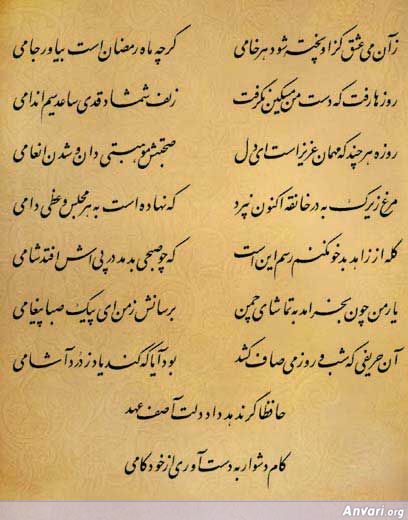 زآن می عشق کزاو پخته شود هر خامی گرچه ماه رمضان است بیاور جامی
روزها رفت که دست من مسکین نگرفت زلف شمشاد قدی ساعد سیم اندامی
روزه هر چند که مهمان عزیز است ای دل صحبتش موهبتی دان و شدن انعامی
مرغ زیرک به در خانقه اکنون نپرد که نهاده است به هر مجلس وعظی دامی
گله از زاهد بدخو نکنم رسم این است که چو صبحی بدمد در پی اش افتد شامی
یار من چون بخرامد به تماشای چمن برسانش ز من ای پیک صبا پیغامی
آن حریفی که شب و روز می صاف کشد بود آیا که کند یاد ز دردآشامی
حافظا گر ندهد داد دلت آصف عهد
کام دشوار به دست آوری از خودکامی
Anvari.org